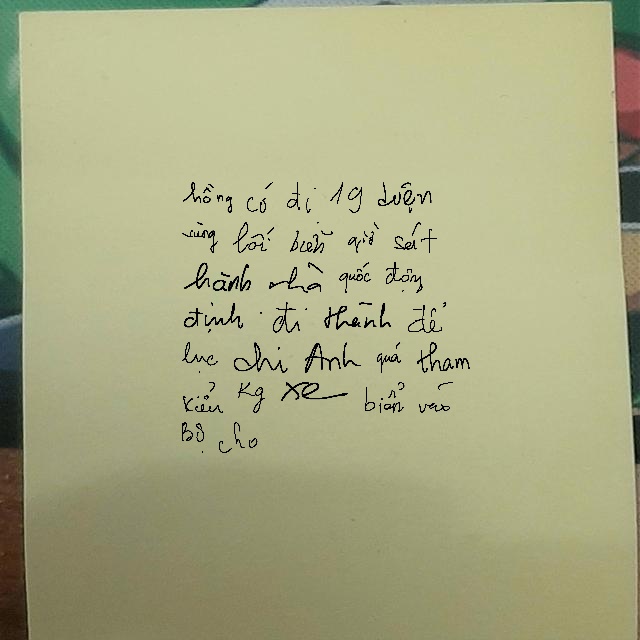 hồng có đi 19 duện
cùng lối biển giờ sát
hành nhà quốc động
định đi thành để
lực chi Anh quá tham
kiểu Kg xe biển vào
Bộ cho